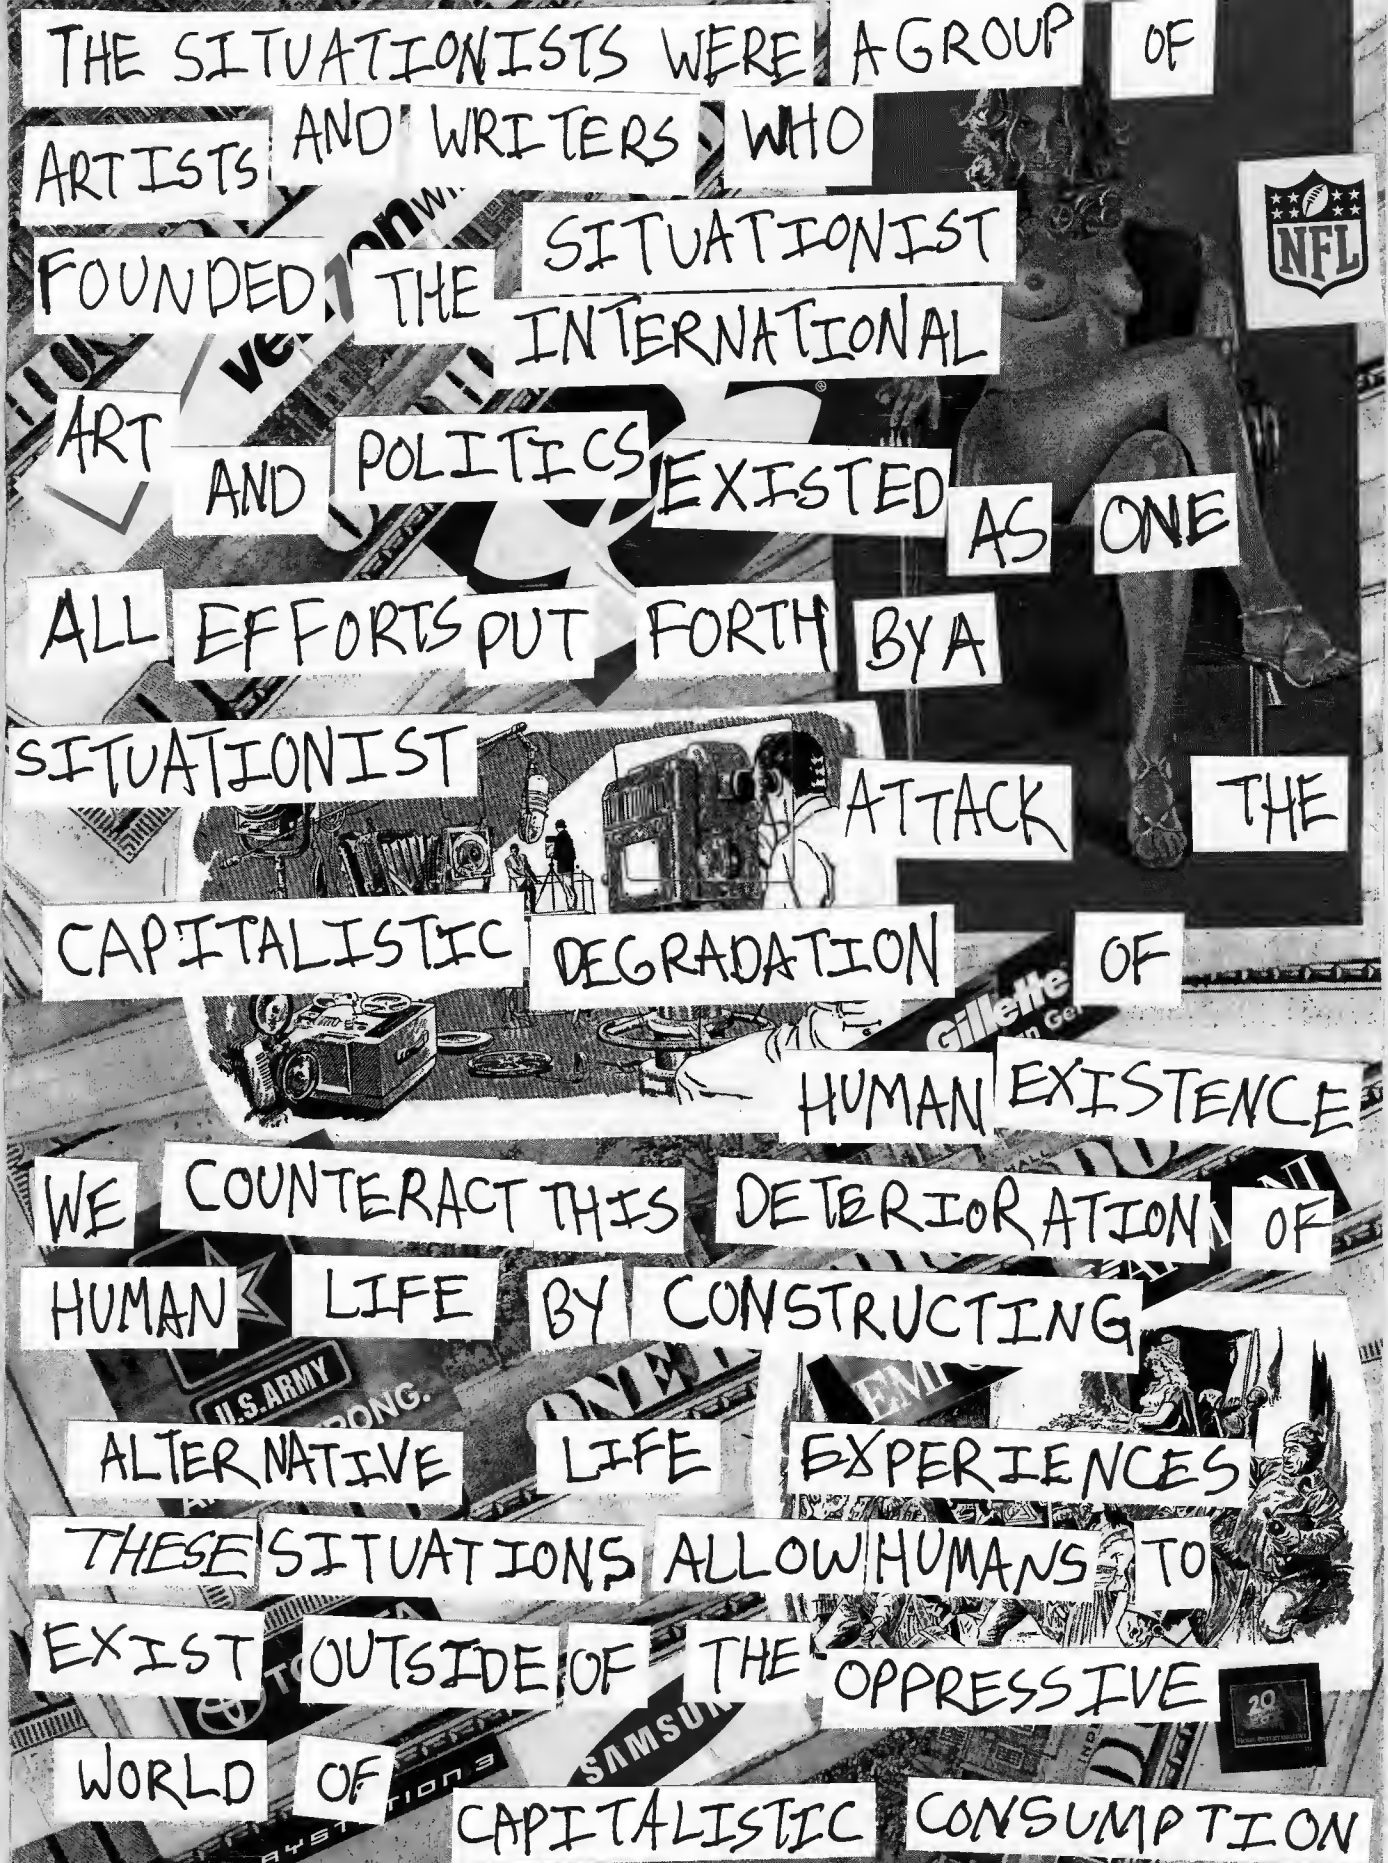 THE SITUATIONISTS WERE A GROUP OF
ARTISTS AND WRITERS WHO
FOUNDED THE SITUATIONIST
INTERNATIONAL
NFL
ART AND POLITICS EXISTED AS ONE
ALL EFFORTS PUT FORTH BY A
SITUATIONIST ATTACK THE
CAPITALISTIC DEGRADATION OF
Gillette
HUMAN EXISTENCE
WE COUNTERACT THIS DETERIORATION OF
HUMAN LIFE BY CONSTRUCTING
U.S. ARMY
ALTERNATIVE LIFE EXPERIENCES
THESE SITUATIONS ALLOW HUMANS TO
EXIST OUTSIDE OF THE OPPRESSIVE
20
WORLD OF
CAPITALISTIC CONSUMPTION